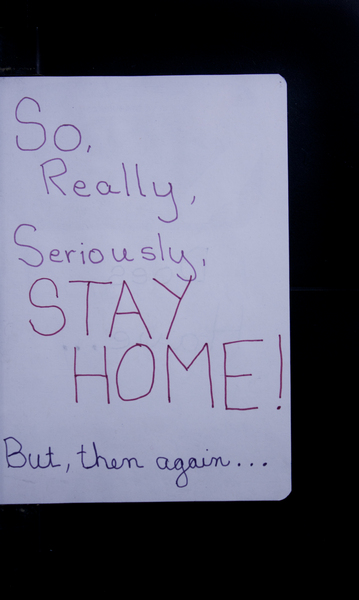 So,
Really,
Seriously,
STAY
HOME!
But, then again...